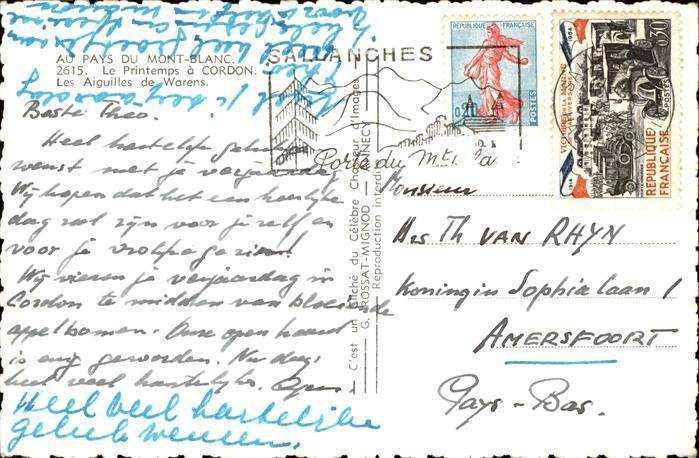 AU PAYS DU MONT-BLANC.
2615. Le Printemps à CORDON.
Les Aiguilles de Warens.
SALLANCHES
Porte du Mt
REPUBLIQUE FRANÇAISE
0,20
POSTES
VICTOIRE DE LA MARNE
1914
1964
0,30
POSTES
REPUBLIQUE
FRANÇAISE
C'est un cliché du Célèbre Chasseur d'Images
G. GROSSAT-MIGNOD - ANNECY
Reproduction Interdite
Beste Theo.
Heel hartelijk
wenst met je verjaardag
Wij hopen dat het een heerlijke
dag zal zijn voor jezelf en
voor je
Wij vieren je verjaardag in
Cordon te midden van bloeiende
appelbomen. Onze open haard
is geworden. Nu dag.
heel veel hartelijks.
Heel veel hartelijke
gelukwensen.
Monsieur
Drs Th VAN RHYN
Koningin Sophialaan 1
AMERSFOORT
Pays-Bas.